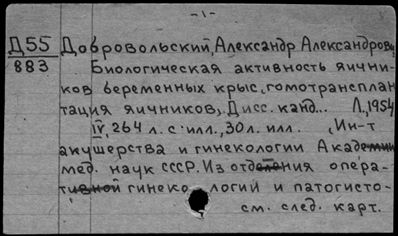 -1-
Д55 Добровольский, Александр Александрович
883 Биологическая активность яични-
ков беременных крыс, гомотрансплан
тация яичников. Дисс. канд... Л., 1954
IV, 264 л. с илл., 30 л. илл. , Ин-т
акушерства и гинекологии Академии
мед. наук СССР. Из отделения опера-
тивной гинекологии и патогисто-
см. след. карт.